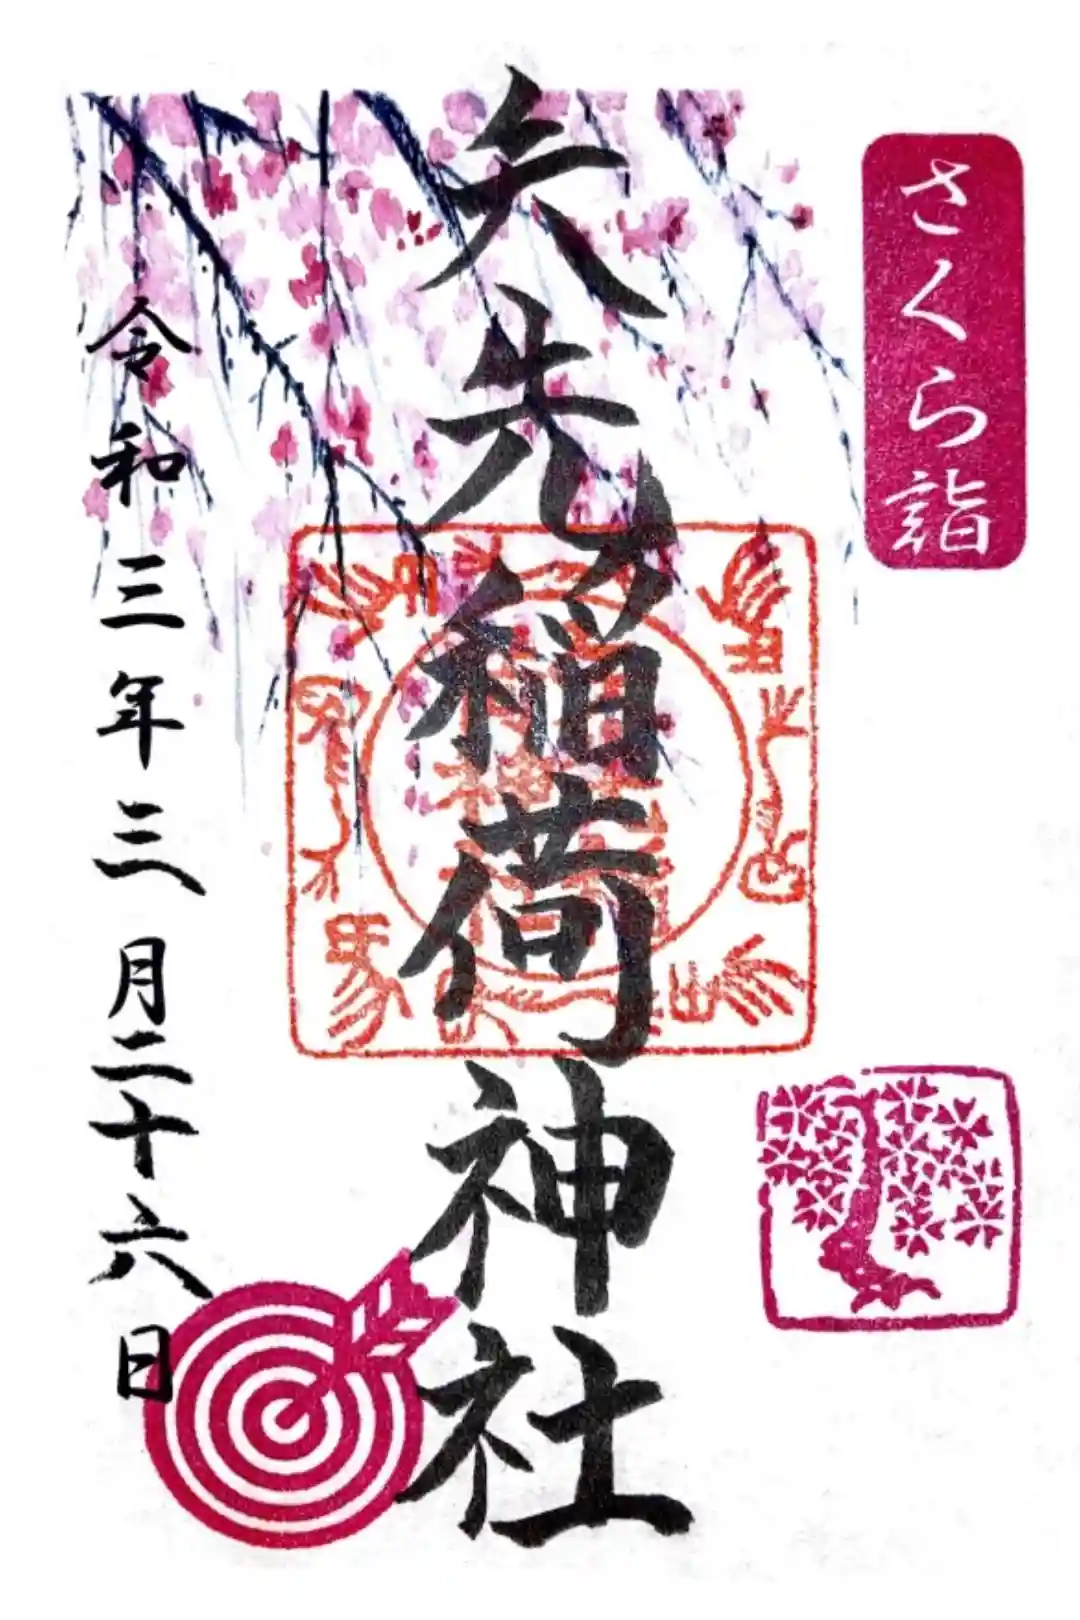 さくら詣
矢先稲荷神社
令和三年三月二十六日